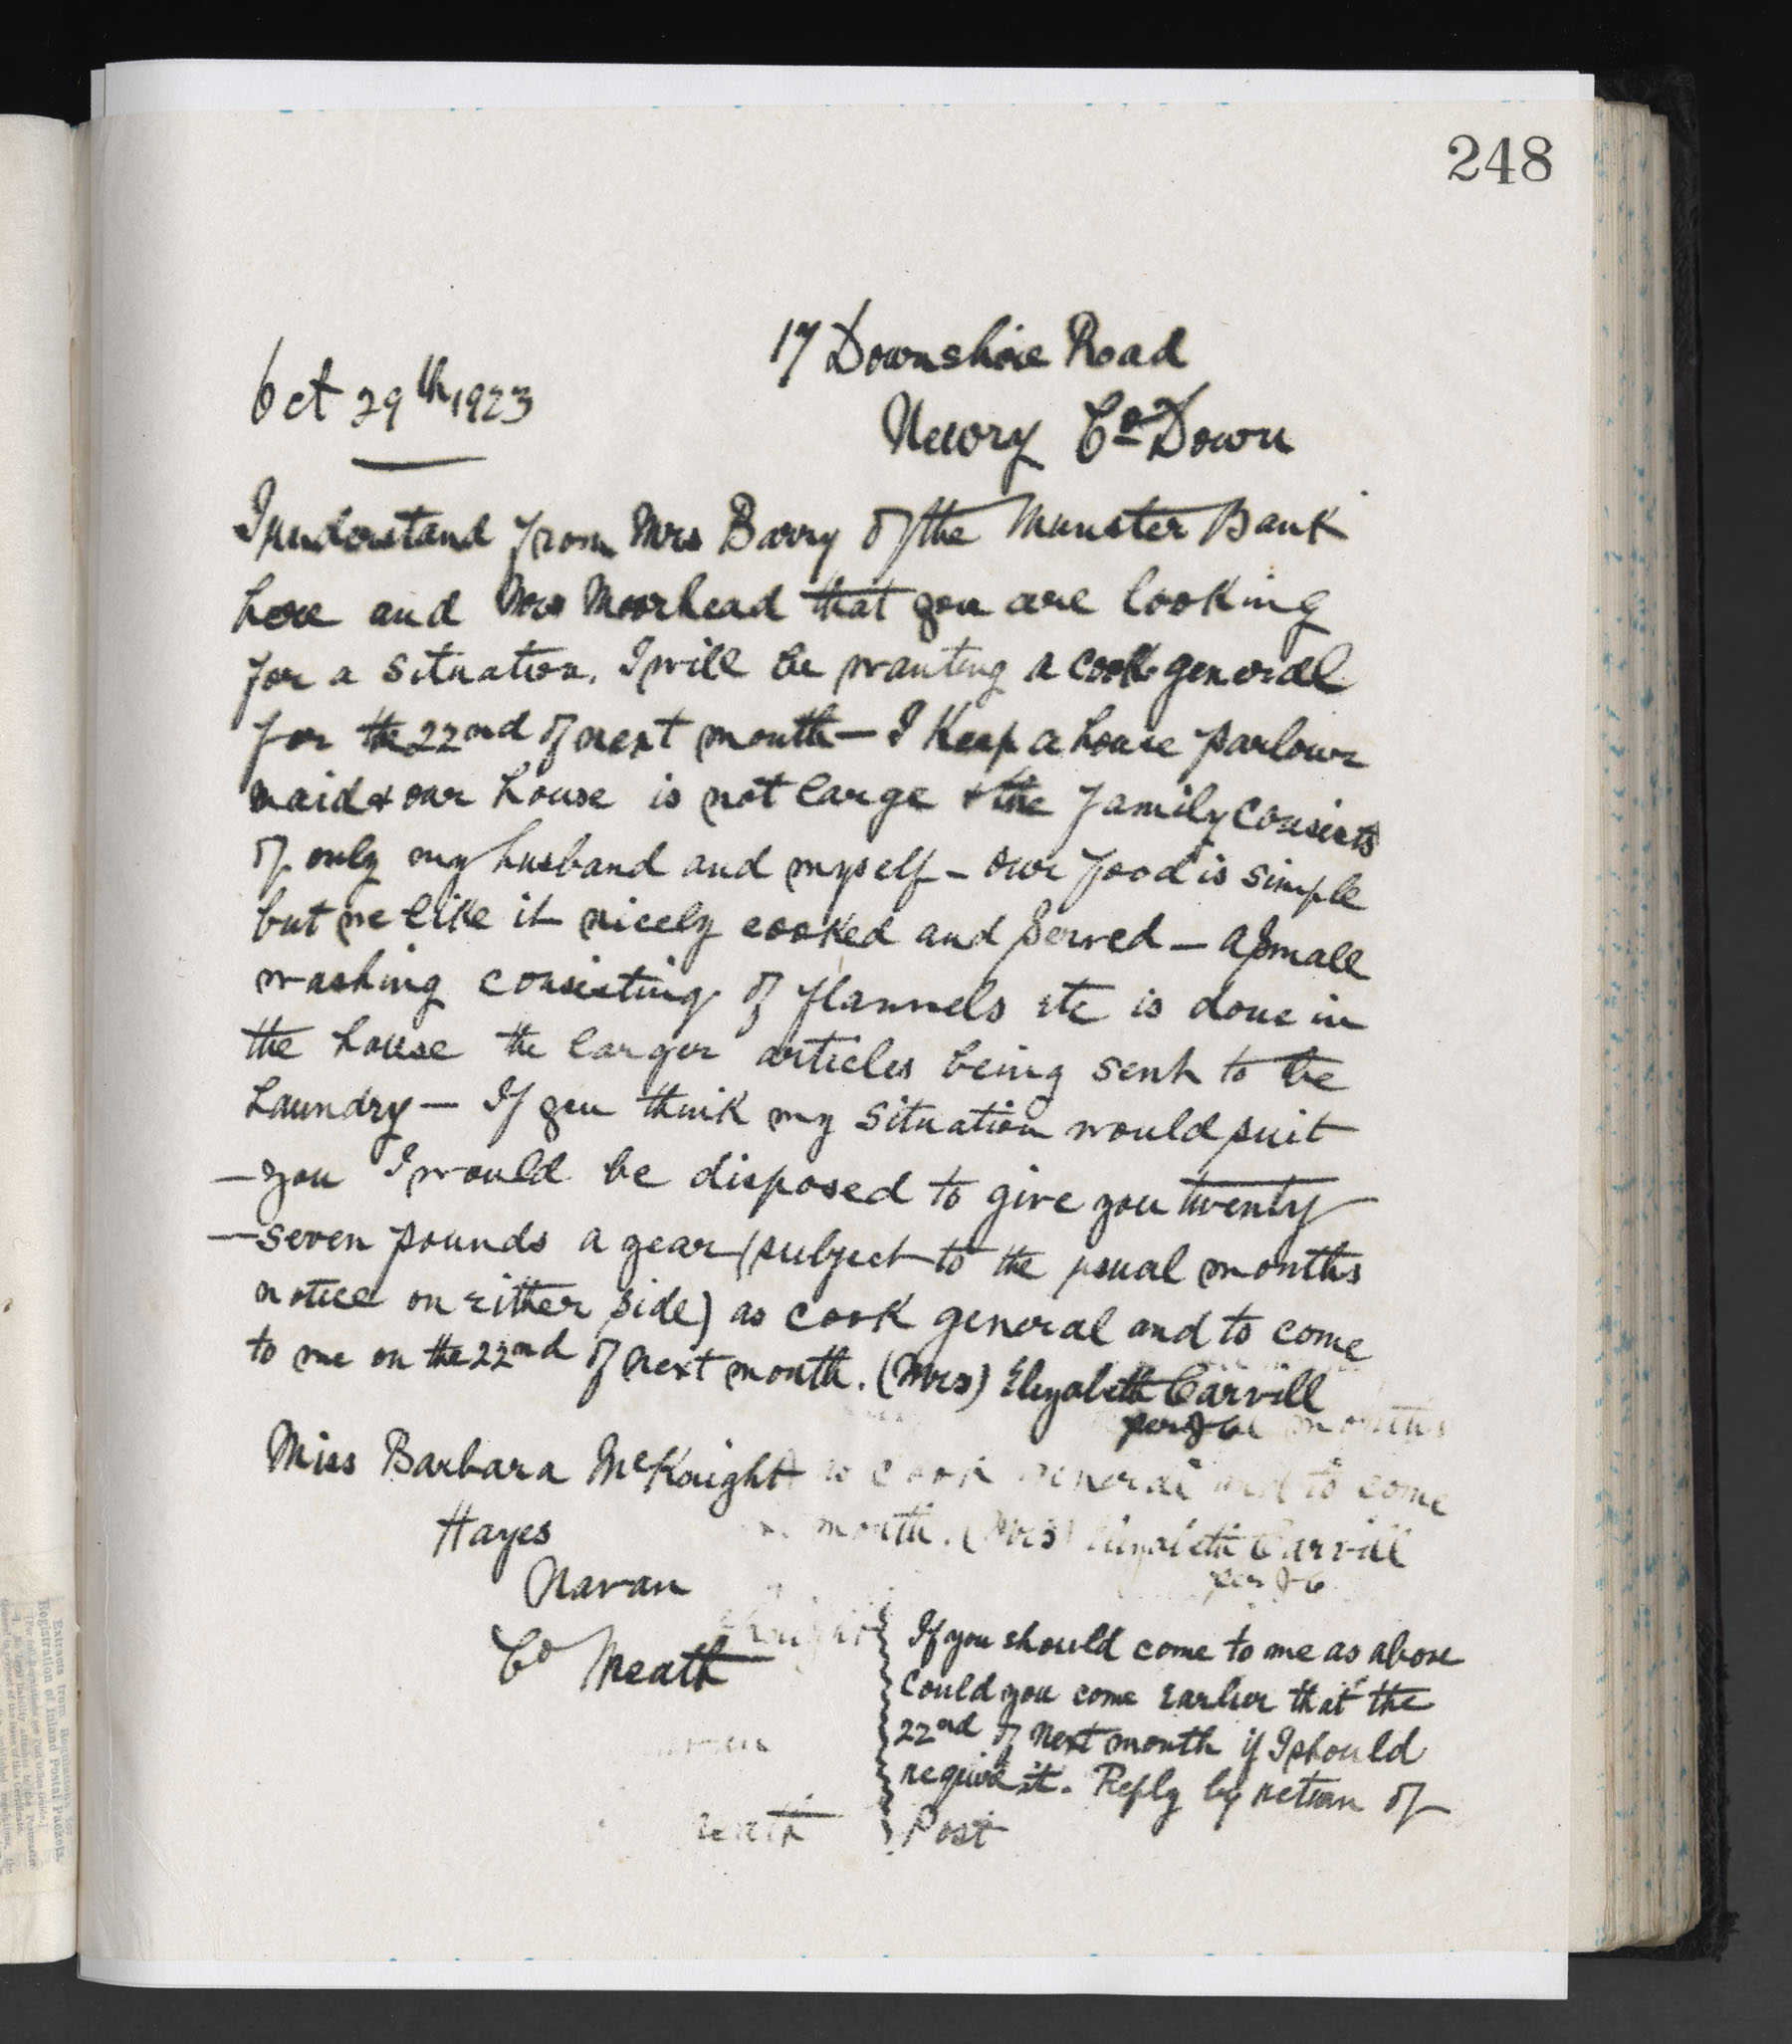 248
17 Downshire Road
Oct 29th 1923
Newry Co Down
I understand from Mrs Barry of the Munster Bank
here and Mrs Moorhead that you are looking
for a situation. I will be wanting a cook general
for the 22nd of next month — I keep a house parlour
maid & our house is not large & the family consists
of only my husband and myself — our food is simple
but we like it nicely cooked and served — a small
washing consisting of flannels etc is done in
the house the larger articles being sent to the
Laundry — If you think my situation would suit
— you I would be disposed to give you twenty
— seven pounds a year (subject to the usual months
notice on either side) as cook general and to come
to me on the 22nd of next month. (Mrs) Elizabeth Carvill
months
Miss Barbara McKnight
cook general and to come
Hayes
month. (Mrs) Elizabeth Carvill
Navan
Co Meath
If you should come to me as above
could you come earlier that the
22nd of next month if I should
require it. Reply by return of
Post
Extracts from Regulations for
Registration of Inland Postal Packets.